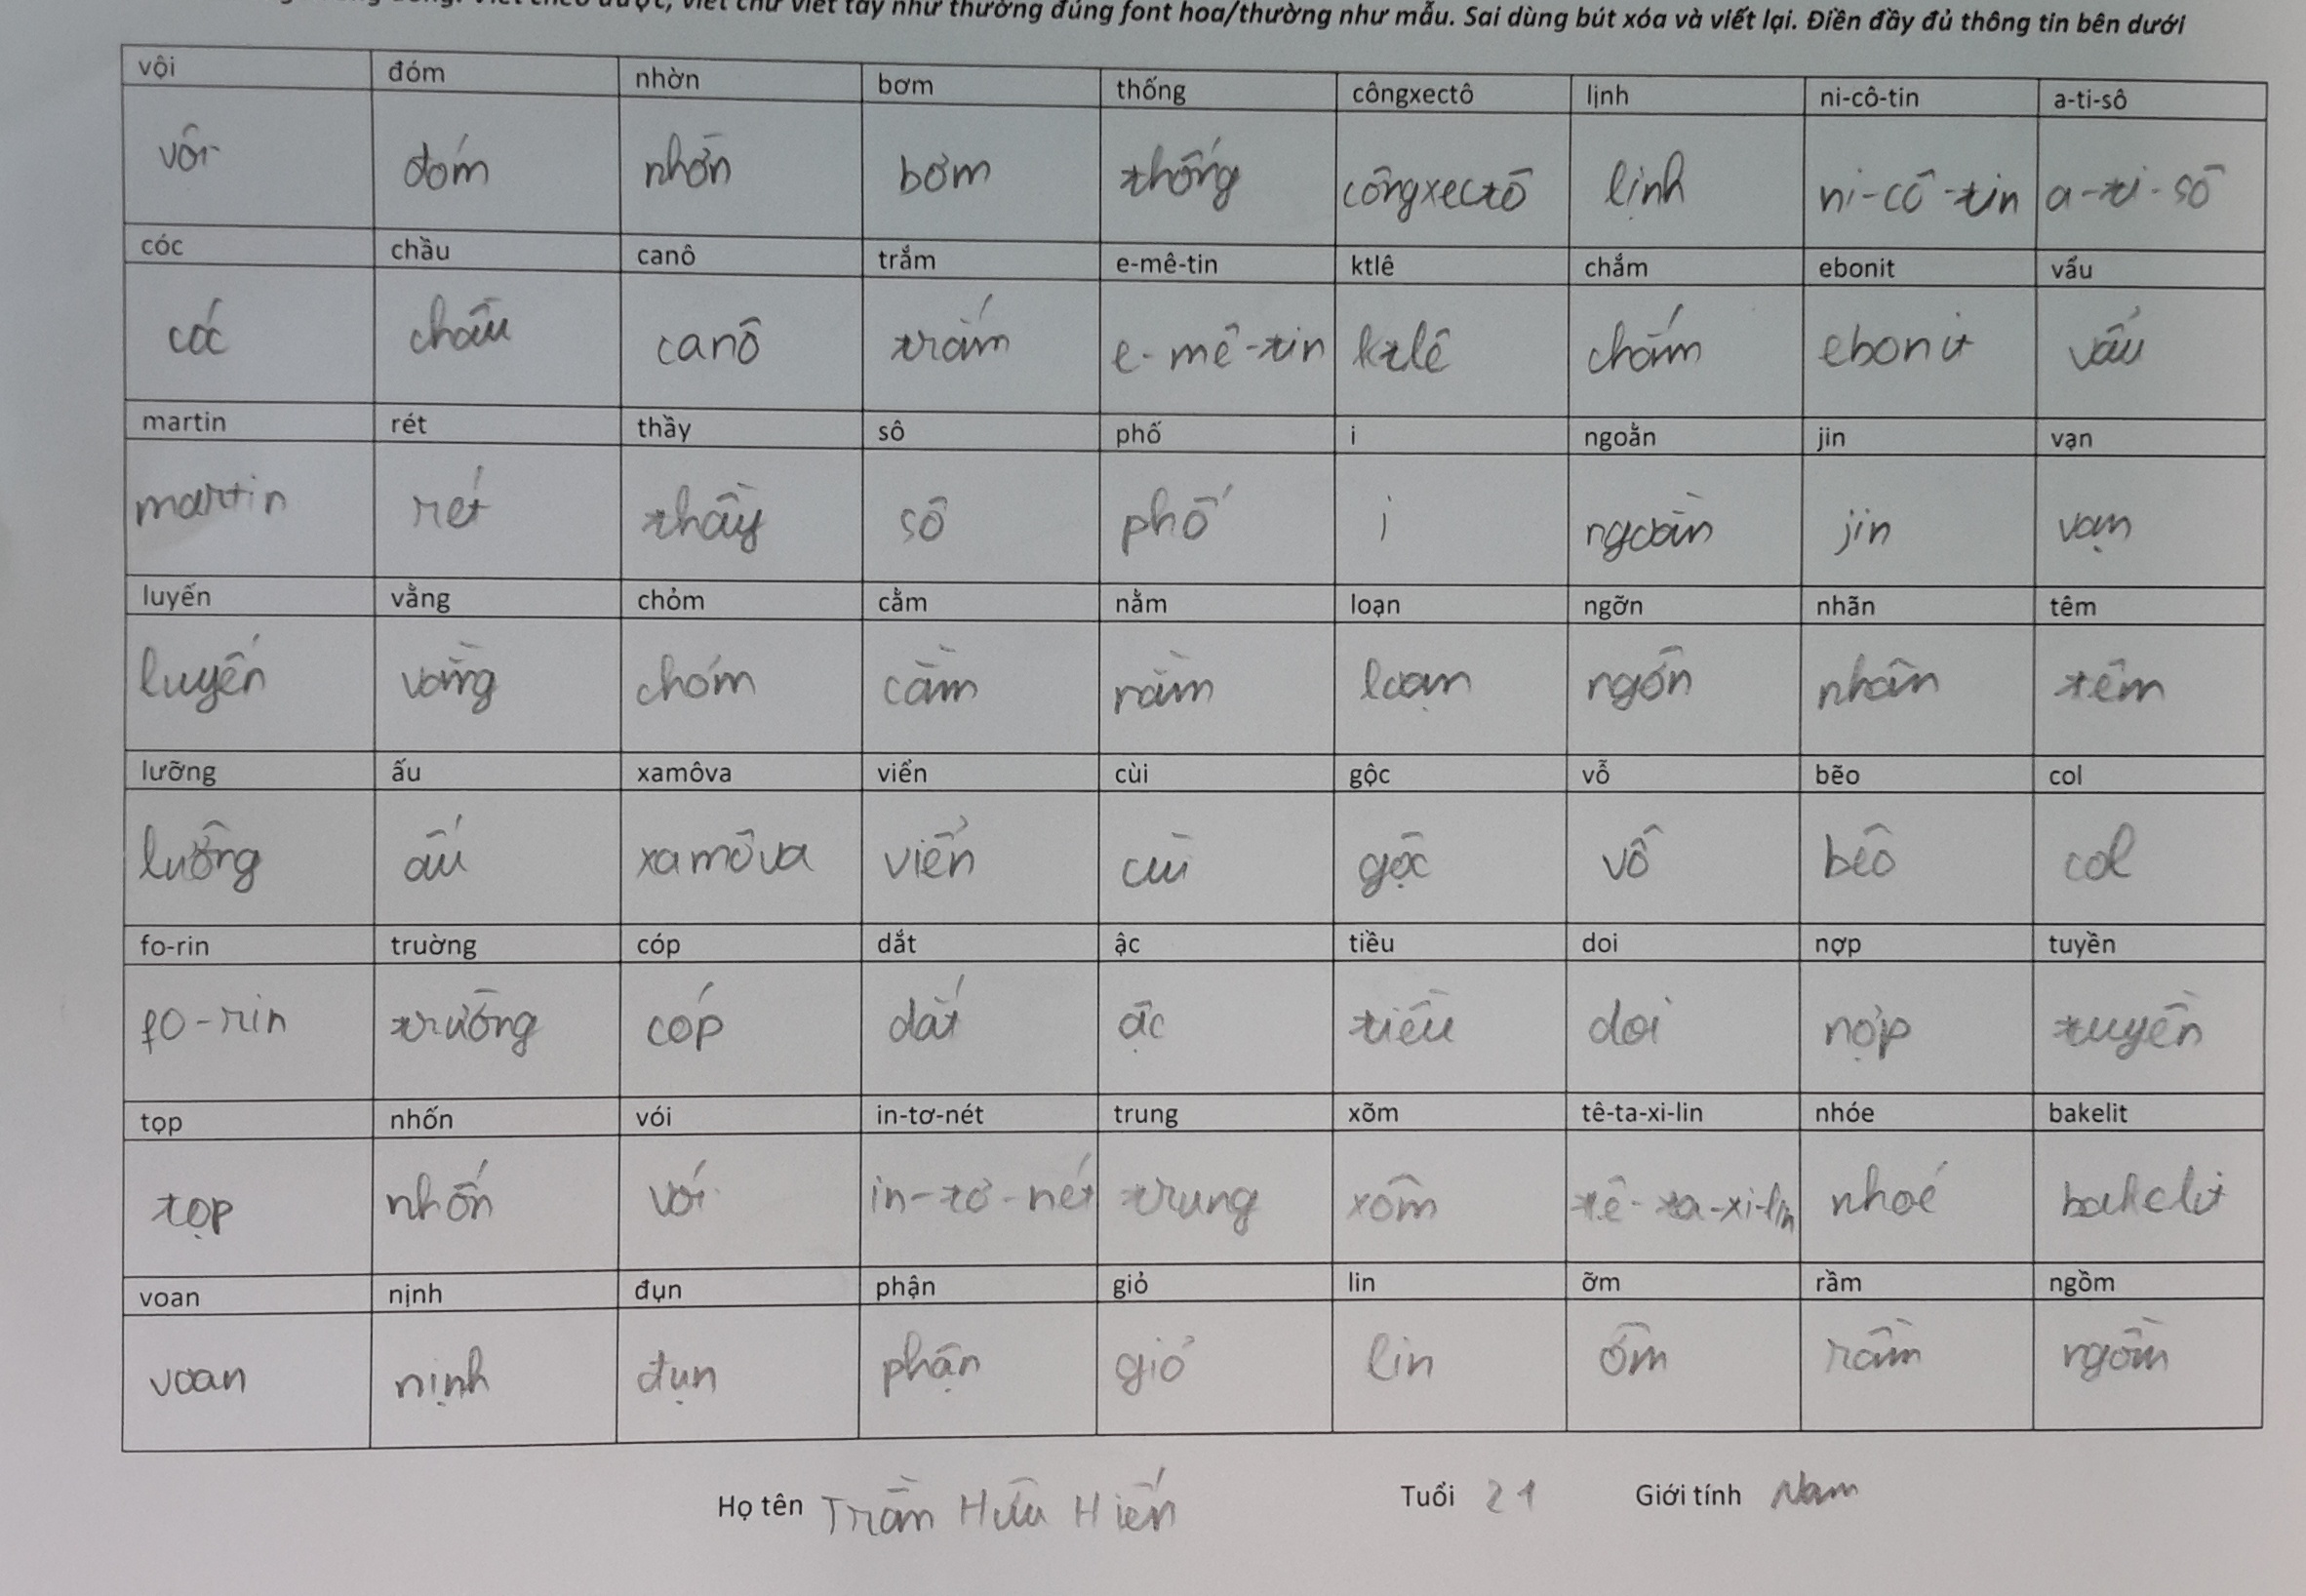 viết chữ viết tay như thường đúng font hoa/thường như mẫu. Sai dùng bút xóa và viết lại. Điền đầy đủ thông tin bên dưới
vội đóm nhờn bơm thống côngxectô lịnh ni-cô-tin a-ti-sô
vội đóm nhờn bơm thống côngxectô lịnh ni-cô-tin a-ti-sô
cóc chầu canô trắm e-mê-tin ktlê chắm ebonit vẩu
cóc chầu canô trắm e-mê-tin ktlê chắm ebonit vẩu
martin rét thầy sô phố i ngoằn jin vạn
martin rét thầy sô phố i ngoằn jin vạn
luyến vằng chỏm cằm nằm loạn ngỡn nhãn têm
luyến vằng chỏm cằm nằm loạn ngỡn nhãn têm
lưỡng ấu xamôva viển cùi gộc vỗ bẽo col
lưỡng ấu xamôva viển cùi gộc vỗ bẽo col
fo-rin truờng cóp dắt ậc tiều doi nợp tuyền
fo-rin trường cóp dắt ậc tiều doi nợp tuyền
tọp nhốn vói in-tơ-nét trung xõm tê-ta-xi-lin nhóe bakelit
tọp nhốn vói in-tơ-nét trung xõm tê-ta-xi-lin nhoé bakelit
voan nịnh đụn phận giỏ lin ỡm rầm ngồm
voan nịnh đụn phận giỏ lin ỡm rầm ngồm
Họ tên Trần Hữu Hiến Tuổi 21 Giới tính Nam